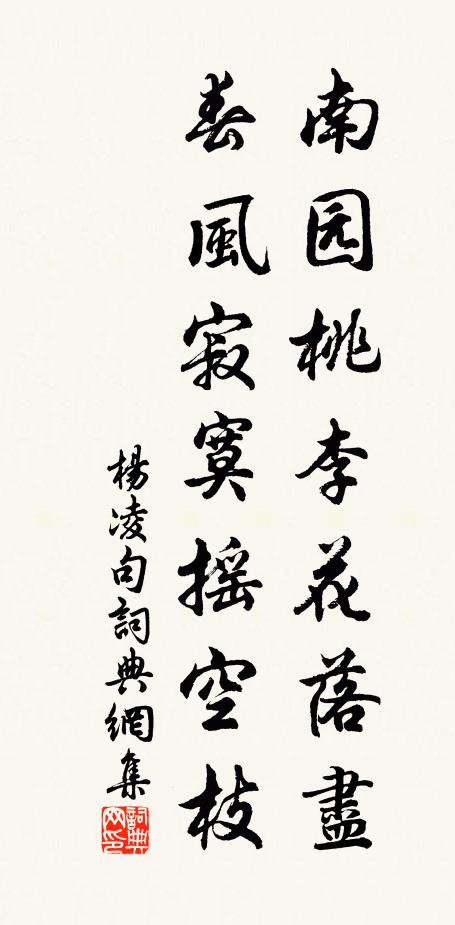 南园桃李花落盡
春風寂寞摇空枝
楊凌句詞典網集
詞典网印